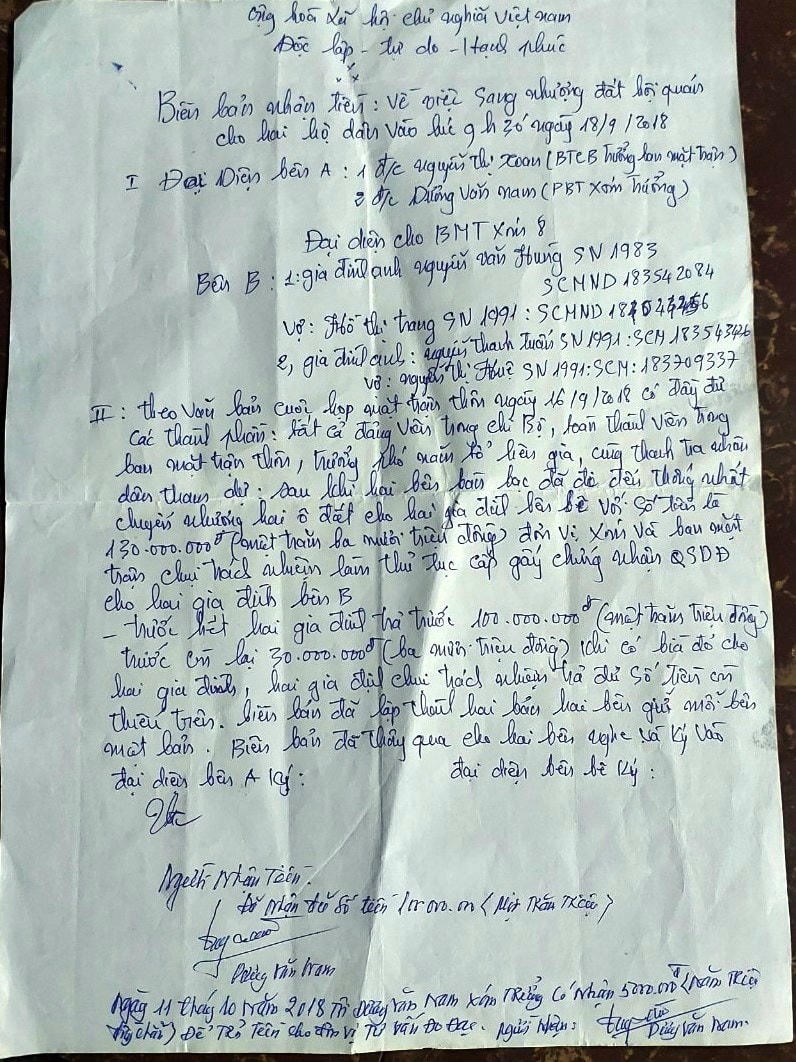 Cộng hoà xã hội chủ nghĩa Việt nam
Độc lập - tự do - Hạnh phúc
Biên bản nhận tiền: Về việc sang nhượng đất hội quán
cho hai hộ dân vào lúc 9h30 ngày 18/9/2018
I Đại Diện bên A : 1 đ/c nguyễn thị Xoan (BTCB trưởng ban mặt trận)
2 đ/c Dương văn nam (PBT Xóm trưởng)
Đại diện cho BMT Xóm 8
Bên B : 1: gia đình anh nguyễn văn Hùng SN 1983
SCMND 183542084
Vợ: Hồ thị trang SN 1991: SCMND
2, gia đình anh: nguyễn thanh tuấn SN 1991: SCM 183543426
Vợ: nguyễn thị Huệ SN 1991: SCM: 183709337
II : theo văn bản cuộc họp mặt trận thôn ngày 16/9/2018 có đầy đủ
các thành phần: tất cả đảng viên trong chi Bộ, toàn thành viên trong
ban mặt trận thôn, trưởng phó năm tổ liên gia, cùng thanh tra nhân
dân tham dự: sau khi hai bên bàn bạc đã đi đến thống nhất
chuyển nhượng hai ô đất cho hai gia đình bên bê với số tiền là
130.000.000đ (một trăm ba mươi triệu đồng) đơn vị xóm và ban mặt
trận chịu trách nhiệm làm thủ tục cấp giấy chứng nhận QSDĐ
cho hai gia đình bên B
- trước hết hai gia đình trả trước 100.000.000đ (một trăm triệu đồng)
trước còn lại 30.000.000đ (ba mươi triệu đồng) khi có bìa đỏ cho
hai gia đình, hai gia đình chịu trách nhiệm trả đủ số tiền còn
thiếu trên. biên bản đã lập thành hai bản hai bên giữ mỗi bên
một bản. Biên bản đã thông qua cho hai bên nghe và ký vào
đại diện bên A ký: đại diện bên bê ký:
Người nhận tiền.
Đã nhận đủ số tiền 100.000.000 (Một trăm triệu)
Dương văn Nam
Ngày 11 tháng 10 năm 2018 Tôi Dương văn Nam xóm trưởng có nhận 5000.000đ (Năm triệu
đồng chẵn) Để trả tiền cho đơn vị tư vấn đo đạc. Người nhận: Dương văn Nam.